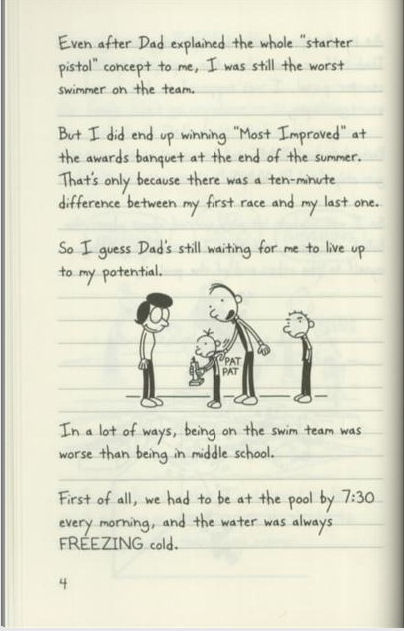 Even after Dad explained the whole "starter
pistol" concept to me, I was still the worst
swimmer on the team.
But I did end up winning "Most Improved" at
the awards banquet at the end of the summer.
That's only because there was a ten-minute
difference between my first race and my last one.
So I guess Dad's still waiting for me to live up
to my potential.
PAT
PAT
In a lot of ways, being on the swim team was
worse than being in middle school.
First of all, we had to be at the pool by 7:30
every morning, and the water was always
FREEZING cold.
4